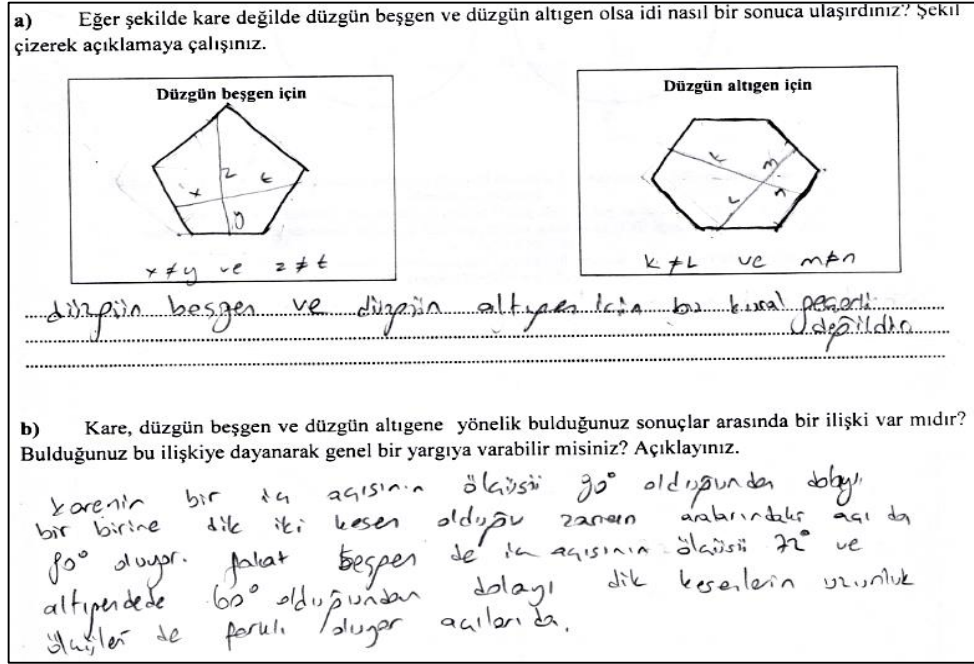 a) Eğer şekilde kare değilde düzgün beşgen ve düzgün altıgen olsa idi nasıl bir sonuca ulaşırdınız? Şekil
çizerek açıklamaya çalışınız.
Düzgün beşgen için
x z t
x ≠ y ve z ≠ t
Düzgün altıgen için
K m L n
K ≠ L ve m ≠ n
düzgün beşgen ve düzgün altıgen için bu kural geçerli
değildir.
b) Kare, düzgün beşgen ve düzgün altıgene yönelik bulduğunuz sonuçlar arasında bir ilişki var mıdır?
Bulduğunuz bu ilişkiye dayanarak genel bir yargıya varabilir misiniz? Açıklayınız.
karenin bir iç açısının ölçüsü 90° olduğundan dolayı
bir birine dik iki kesen olduğu zaman aralarındaki açı da
90° oluyor. fakat beşgen de iç açısının ölçüsü 72° ve
altıgendede 60° olduğundan dolayı dik kesenlerin uzunluk
ölçüleri de farklı oluyor açıları da.